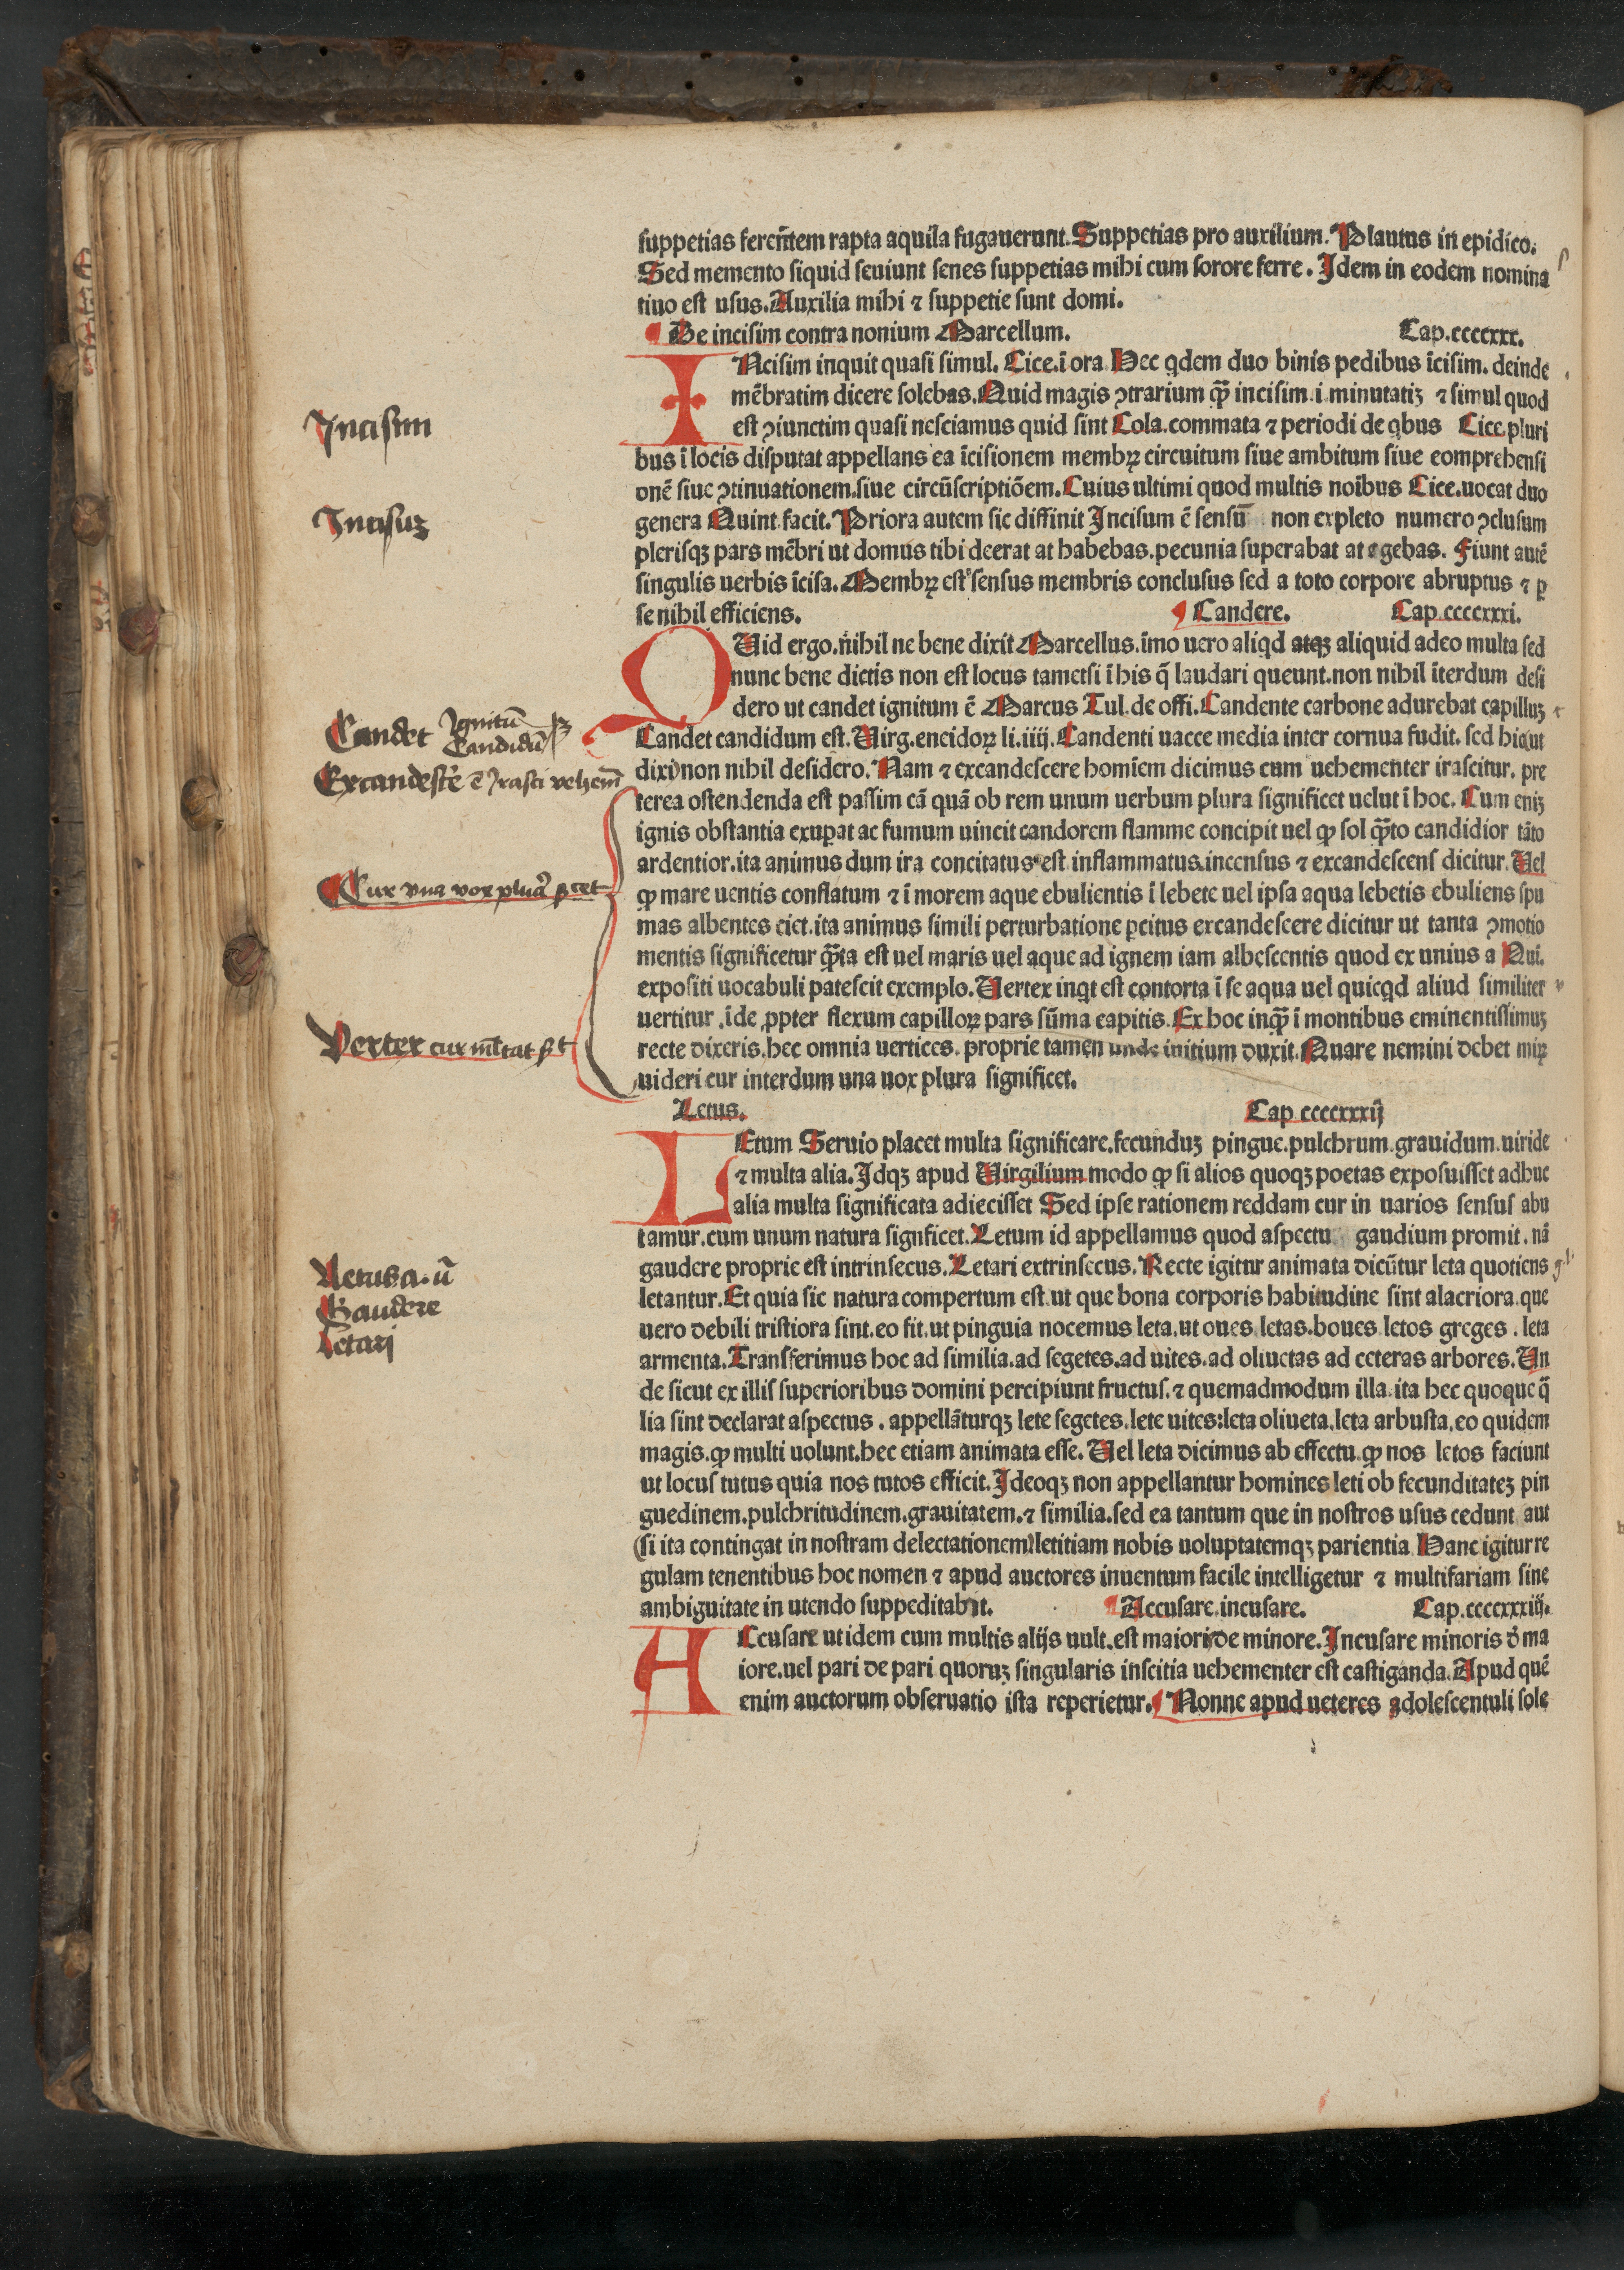 suppetias fereñtem rapta aquila fugauerunt. Suppetias pro auxilium. Plautus in epidico.
Sed memento siquid seuiunt senes suppetias mihi cum sorore ferre. Idem in eodem nomina
tiuo est usus. Auxilia mihi ⁊ suppetie sunt domi.
De incisim contra nonium Marcellum. Cap.ccccxxx.
INcisim inquit quasi simul. Cice. ī ora Hec qdem duo binis pedibus īcisim. deinde
mēbratim dicere solebas. Quid magis ꝯtrarium qꝫ̄ incisim .i. minutatiꝫ ⁊ simul quod
est ꝯiunctim quasi nesciamus quid sint Cola. commata ⁊ periodi de qbus Cice. pluri
bus ī locis disputat appellans ea īcisionem membꝝ circuitum siue ambitum siue eomprehensi
onē siue ꝯtinuationem. siue circūscriptiōem. Cuius ultimi quod multis noībus Cice. uocat duo
genera Quint. facit. Priora autem sic diffinit Incisum ē sensū non expleto numero ꝯclusum
plerisqꝫ pars mēbri ut domus tibi deerat at habebas. pecunia superabat at egebas. Fiunt autē
singulis uerbis īcisa. Membꝝ est sensus membris conclusus sed a toto corpore abruptus ⁊ ꝑ
se nihil efficiens. Candere. Cap.ccccxxxi.
QUid ergo. nihil ne bene dixit Marcellus. īmo uero aliqd atqꝫ aliquid adeo multa sed
nunc bene dictis non est locus tametsi ī his q̄ laudari queunt. non nihil īterdum desi
dero ut candet ignitum ē Marcus Tul. de offi. Candente carbone adurebat capilluꝫ
Candet candidum est. Uirg. eneidoꝝ li. iiij. Candenti uacce media inter cornua fudit. sed hic (ut
dixi) non nihil desidero. Nam ⁊ excandescere homīem dicimus cum uehementer irascitur. pre
terea ostendenda est passim cā quā ob rem unum uerbum plura significet uelut ī hoc. Cum eniꝫ
ignis obstantia exuꝑat ac fumum uincit candorem flamme concipit uel ꝙ sol qꝫ̄to candidior tāto
ardentior. ita animus dum ira concitatus est inflammatus. incensus ⁊ excandescens dicitur. Uel
ꝙ mare uentis conflatum ⁊ ī morem aque ebulientis ī lebete uel ipsa aqua lebetis ebuliens spu
mas albentes ciet. ita animus simili perturbatione ꝑcitus excandescere dicitur ut tanta ꝯmotio
mentis significetur qꝫ̄ta est uel maris uel aque ad ignem iam albescentis quod ex unius a Qui.
expositi uocabuli patescit exemplo. Uertex inqt est contorta ī se aqua uel quicqd aliud similiter
uertitur. īde ꝓpter flexum capilloꝝ pars sūma capitis. Ex hoc inqꝫ̄ ī montibus eminentissimuꝫ
recte dixeris. hec omnia uertices. proprie tamen unde initium duxit. Quare nemini debet miꝝ
uideri cur interdum una uox plura significet.
Letus. Cap ccccxxxij
LEtum Seruio placet multa significare. fecunduꝫ pingue. pulchrum. grauidum. uiride
⁊ multa alia. Idqꝫ apud Uirgilium modo ꝙ si alios quoqꝫ poetas exposuisset adhuc
alia multa significata adiecisset Sed ipse rationem reddam cur in uarios sensus abu
tamur. cum unum natura signficet. Letum id appellamus quod aspectu gaudium promit. nā
gaudere proprie est intrinsecus. Letari extrinsecus. Recte igitur animata dicūtur leta quotiens
letantur. Et quia sic natura compertum est. ut que bona corporis habitudine sint alacriora. que
uero debili tristiora sint. eo fit. ut pinguia nocemus leta. ut oues letas. boues letos greges. leta
armenta. Transferimus hoc ad similia. ad segetes. ad uites. ad oliuetas ad ceteras arbores. Un
de sicut ex illis superioribus domini percipiunt fructus. ⁊ quemadmodum illa. ita hec quoque q̄
lia sint declarat aspectus. appellāturqꝫ lete segetes. lete uites: leta oliueta. leta arbusta. eo quidem
magis. ꝙ multi uolunt. hec etiam animata esse. Uel leta dicimus ab effectu. ꝙ nos letos faciunt
ut locus tutus quia nos tutos efficit. Ideoqꝫ non appellantur homines leti ob fecunditateꝫ pin
guedinem. pulchritudinem. grauitatem. ⁊ similia. sed ea tantum que in nostros usus cedunt aut
(si ita contingat in nostram delectationem) letitiam nobis uoluptatemqꝫ parientia Hanc igitur re
gulam tenentibus hoc nomen ⁊ apud auctores inuentum facile intelligetur ⁊ multifariam sine
ambiguitate in utendo suppeditabit. Accusare. incusare. Cap.ccccxxxiij.
ACcusare ut idem cum multis alijs uult. est maioris de minore. Incusare minoris ď ma
iore. uel pari de pari quoruꝫ singularis inscitia uehementer est castiganda. Apud quē
enim auctorum obseruatio ista reperietur. Nonne apud ueteres adolescentuli sole
Incisim
Incisuꝫ
Candet Ignitū
Candidū
Excandescē̄ ē Irasci vehem̄
Cur vna vox plura
Vertex cur
Letus.a.ū
Gaudere
Letari